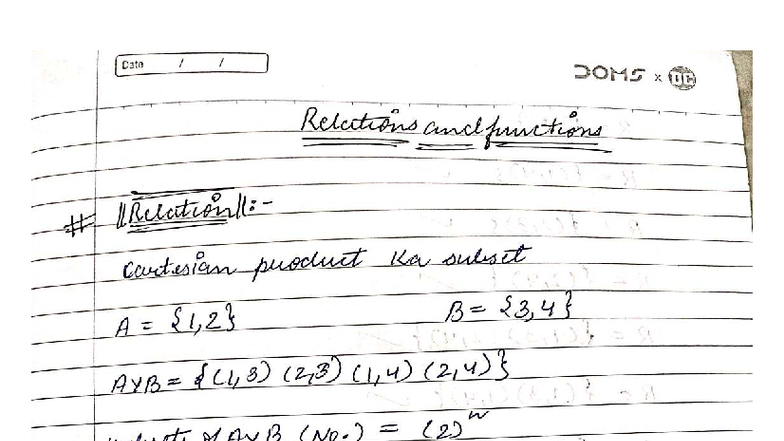 Date / /
DOMS x DC
Relations and functions
# ||Relation||:-
Cartesian product ka subset
A = {1,2} B = {3,4}
AxB = {(1,3) (2,3) (1,4) (2,4)}
of AxB (No.) = (2)ⁿ